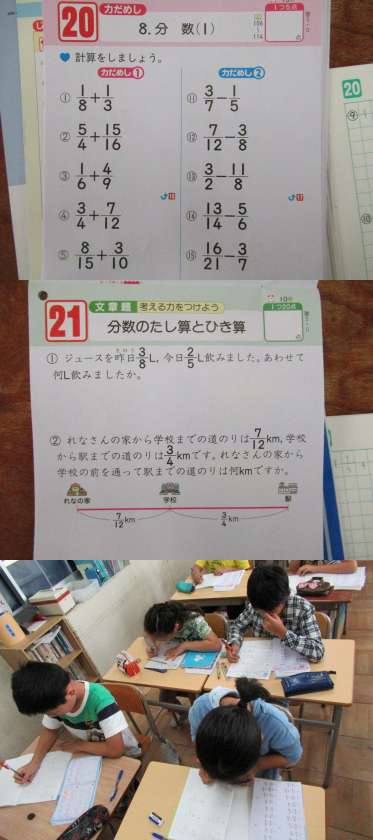 20
力だめし
8.分 数(1)
106
〜
114
1つ5点
計算をしましょう。
力だめし① 力だめし②
① 1/8+1/3
② 5/4+15/16
③ 1/6+4/9
18
④ 3/4+7/12
⑤ 8/15+3/10
⑪ 3/7-1/5
⑫ 7/12-3/8
⑬ 3/2-11/8
17
⑭ 13/14-5/6
⑮ 16/21-3/7
20
⑨
⑩
21
文章題 考える力をつけよう
分数のたし算とひき算
10分
1つ20点
① ジュースを昨日3/8L,今日2/5L飲みました。あわせて
何L飲みましたか。
② れなさんの家から学校までの道のりは7/12km,学校
から駅までの道のりは3/4kmです。れなさんの家から
学校の前を通って駅までの道のりは何kmですか。
れなの家 学校 駅
7/12km 3/4km